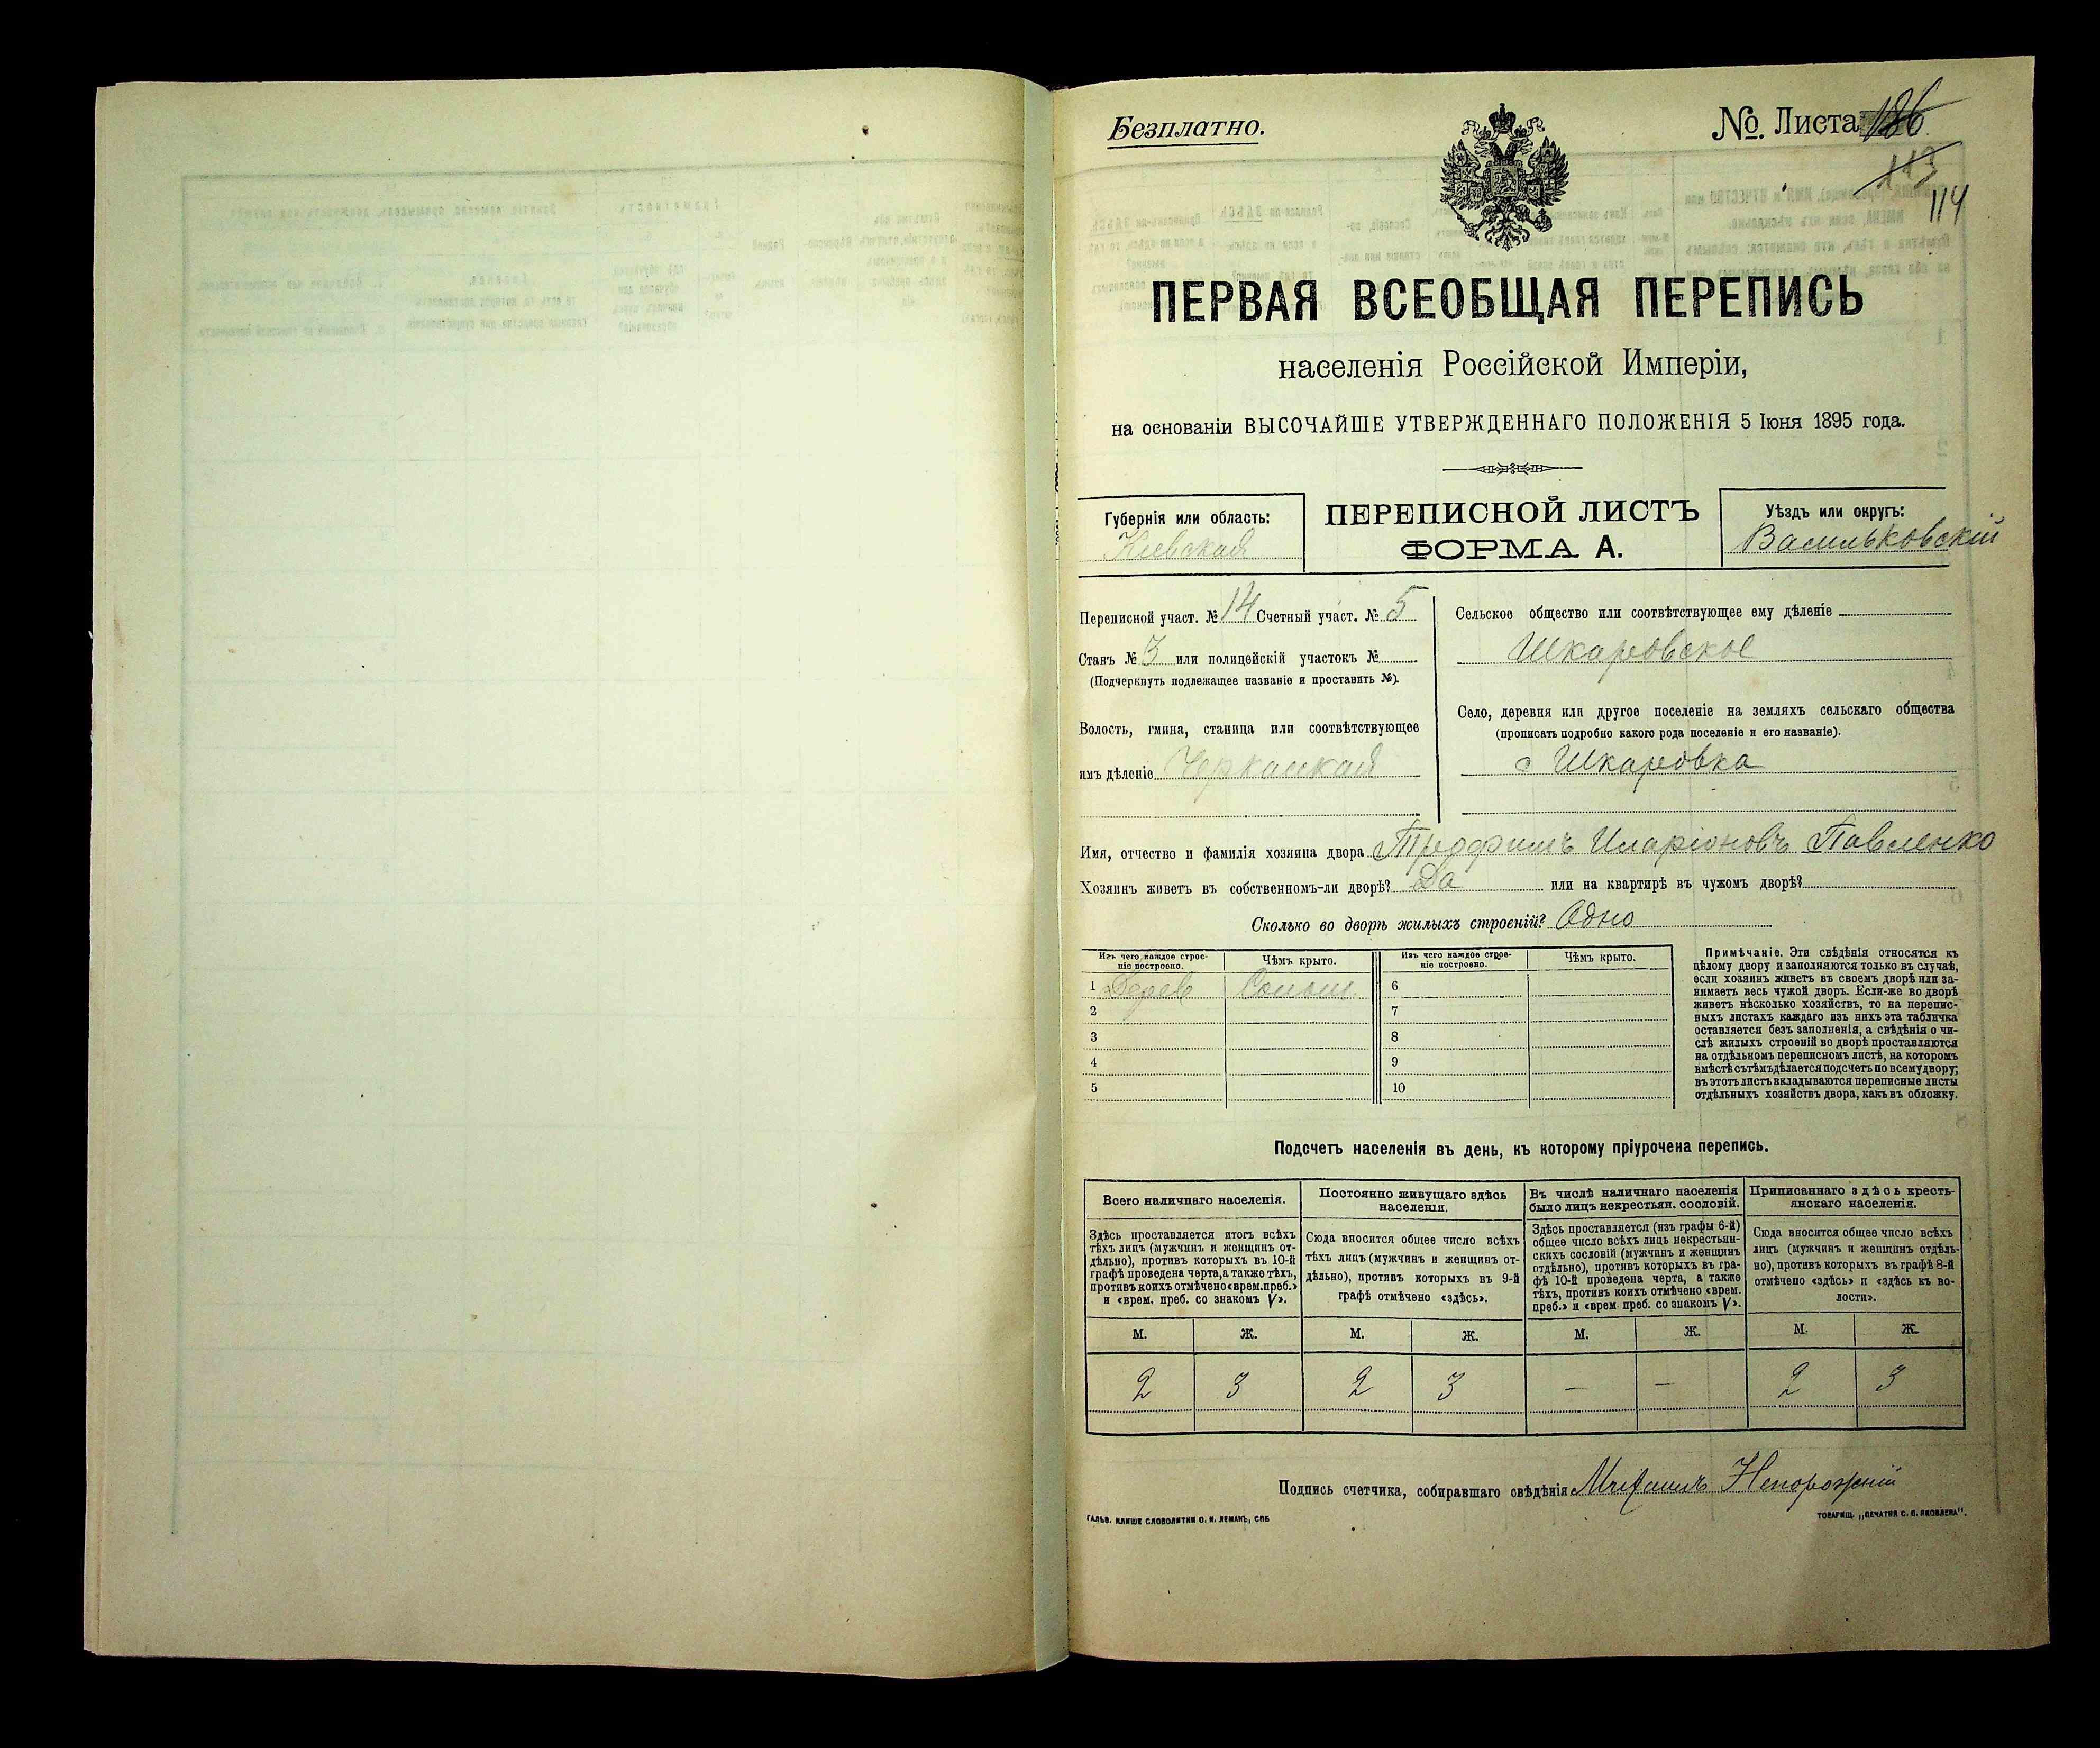 Безплатно.
№. Листа 186
113
114
ПЕРВАЯ ВСЕОБЩАЯ ПЕРЕПИСЬ
населенія Россійской Имперіи,
на основаніи ВЫСОЧАЙШЕ УТВЕРЖДЕННАГО ПОЛОЖЕНІЯ 5 Іюня 1895 года.
Губернія или область:
Кіевская
ПЕРЕПИСНОЙ ЛИСТЪ
ФОРМА А.
Уѣздъ или округъ:
Васильковскій
Переписной участ. № 14 Счетный участ. № 5
Станъ № 3 или полицейскій участокъ №
(Подчеркнуть подлежащее названіе и проставить №).
Волость, гмина, станица или соотвѣтствующее
имъ дѣленіе Черкаская
Сельское общество или соотвѣтствующее ему дѣленіе
Шкаровское
Село, деревня или другое поселеніе на земляхъ сельскаго общества
(прописать подробно какого рода поселеніе и его названіе).
с Шкаровка
Имя, отчество и фамилія хозяина двора Трофимъ Иларіоновъ Павленко
Хозяинъ живетъ въ собственномъ-ли дворѣ? Да или на квартирѣ въ чужомъ дворѣ?
Сколько во дворѣ жилыхъ строеній? Одно
Изъ чего каждое строе-
ніе построено.
Чѣмъ крыто.
Изъ чего каждое строе-
ніе построено.
Чѣмъ крыто.
1 Дерев Солом 6
2 7
3 8
4 9
5 10
Примѣчаніе. Эти свѣдѣнія относятся къ
цѣлому двору и заполняются только въ случаѣ,
если хозяинъ живетъ въ своемъ дворѣ или за-
нимаетъ весь чужой дворъ. Если-же во дворѣ
живетъ нѣсколько хозяйствъ, то на перепис-
ныхъ листахъ каждаго изъ нихъ эта табличка
оставляется безъ заполненія, а свѣдѣнія о чи-
слѣ жилыхъ строеній во дворѣ проставляются
на отдѣльномъ переписномъ листѣ, на которомъ
вмѣстѣ съ тѣмъ дѣлается подсчетъ по всему двору;
въ этотъ листъ вкладываются переписные листы
отдѣльныхъ хозяйствъ двора, какъ въ обложку.
Подсчетъ населенія въ день, къ которому пріурочена перепись.
Всего наличнаго населенія.
Постоянно живущаго здѣсь
населенія.
Въ числѣ наличнаго населенія
было лицъ некрестьян. сословій.
Приписаннаго здѣсь кресть-
янскаго населенія.
Здѣсь проставляется итогъ всѣхъ
тѣхъ лицъ (мужчинъ и женщинъ от-
дѣльно), противъ которыхъ въ 10-й
графѣ проведена черта, а также тѣхъ,
противъ коихъ отмѣчено «врем. преб.»
и «врем. преб. со знакомъ V».
Сюда вносится общее число всѣхъ
тѣхъ лицъ (мужчинъ и женщинъ от-
дѣльно), противъ которыхъ въ 9-й
графѣ отмѣчено «здѣсь».
Здѣсь проставляется (изъ графы 6-й)
общее число всѣхъ лицъ некрестьян-
скихъ сословій (мужчинъ и женщинъ
отдѣльно), противъ которыхъ въ гра-
фѣ 10-й проведена черта, а также
тѣхъ, противъ коихъ отмѣчено «врем.
преб.» и «врем. преб. со знакомъ V».
Сюда вносится общее число всѣхъ
лицъ (мужчинъ и женщинъ отдѣль-
но), противъ которыхъ въ графѣ 8-й
отмѣчено «здѣсь» и «здѣсь къ во-
лости».
М. Ж. М. Ж. М. Ж. М. Ж.
2 3 2 3 — — 2 3
Подпись счетчика, собиравшаго свѣдѣнія Михаилъ Непорожній
ГАЛЬВ. КЛИШЕ СЛОВОЛИТНИ О. И. ЛЕМАНЪ, СПБ
ТОВАРИЩ. „ПЕЧАТНЯ С. П. ЯКОВЛЕВА".